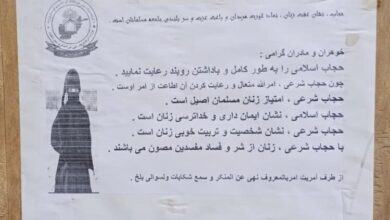 حجاب ، زنان ، نماد غیرت مردان و باعث عزت و سر بلندی جامعه مسلمانان است .
خوهران و مادران گرامی :
حجاب اسلامی را به طور کامل و باداشتن روبند رعایت نمایید .
چون حجاب شرعی ، امرالله متعال و رعایت کردن آن اطاعت از امر اوست .
حجاب شرعی ، امتیاز زنان مسلمان اصیل است .
حجاب اسلامی ، نشان ایمان داری و خداترسی زنان است .
حجاب شرعی ، نشان شخصیت و تربیت خوبی زنان است .
با حجاب شرعی ، زنان از شر و فساد مفسدین مصون می باشند .
از طرف آمریت امربالمعروف نهی عن المنکر و سمع شکایات ولسوالی بلخ .